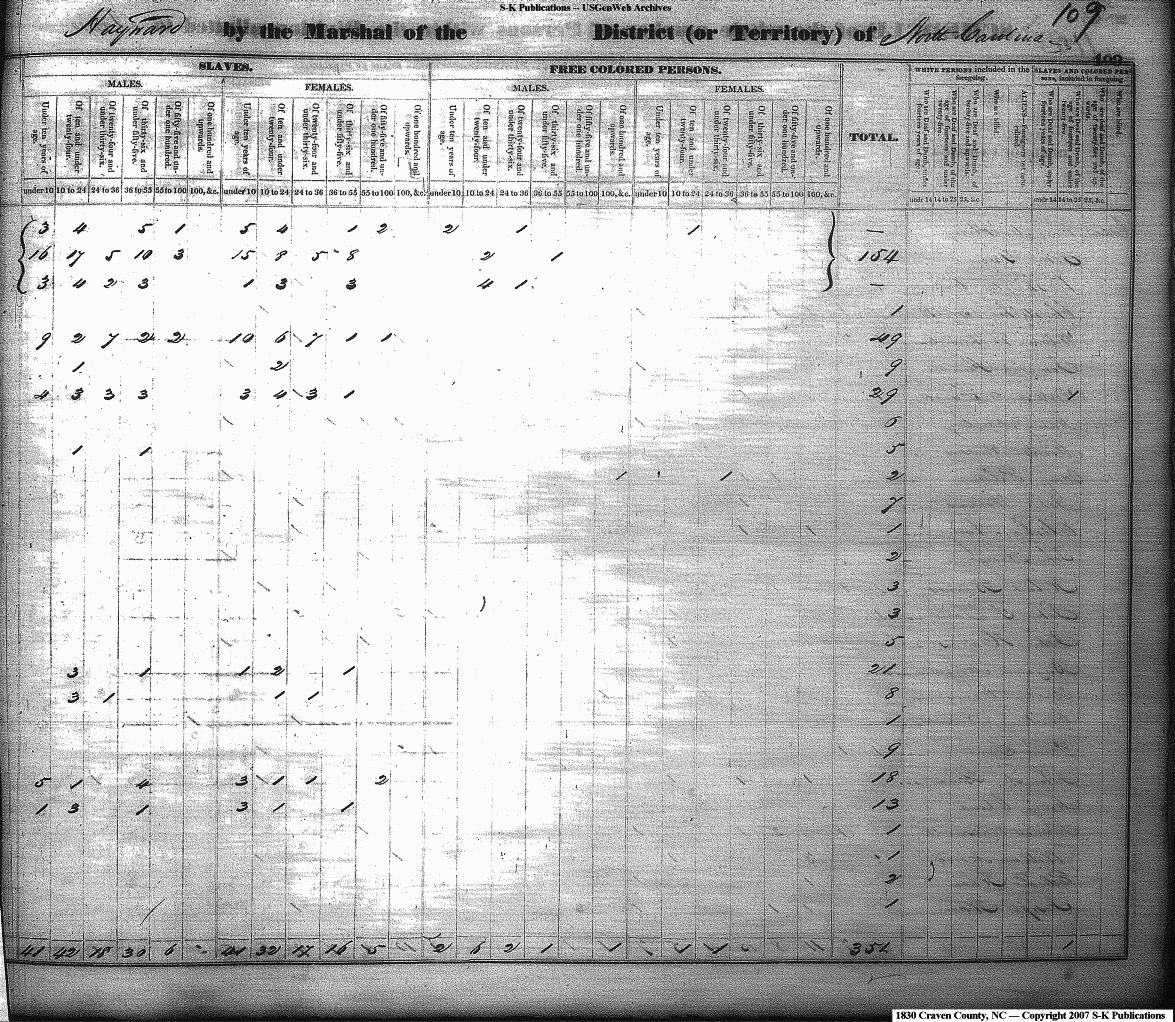 S-K Publications -- USGenWeb Archives
109
Hayward by the Marshal of the District (or Territory) of North Carolina
109
SLAVES. FREE COLORED PERSONS. WHITE PERSONS included in the foregoing. SLAVES AND COLORED PERSONS, included in foregoing.
MALES. FEMALES. MALES. FEMALES.
Under ten years of age. Of ten and under twenty-four. Of twenty-four and under thirty-six. Of thirty-six and under fifty-five. Of fifty-five and under one hundred. Of one hundred and upwards. Under ten years of age. Of ten and under twenty-four. Of twenty-four and under thirty-six. Of thirty-six and under fifty-five. Of fifty-five and under one hundred. Of one hundred and upwards. Under ten years of age. Of ten and under twenty-four. Of twenty-four and under thirty-six. Of thirty-six and under fifty-five. Of fifty-five and under one hundred. Of one hundred and upwards. Under ten years of age. Of ten and under twenty-four. Of twenty-four and under thirty-six. Of thirty-six and under fifty-five. Of fifty-five and under one hundred. Of one hundred and upwards. TOTAL.
under 10 10 to 24 24 to 36 36 to 55 55 to 100 100, &c. under 10 10 to 24 24 to 36 36 to 55 55 to 100 100, &c. under 10 10 to 24 24 to 36 36 to 55 55 to 100 100, &c. under 10 10 to 24 24 to 36 36 to 55 55 to 100 100, &c. undr 14 14 to 25 25, &c. undr 14 14 to 25 25, &c.
3 4 5 1 5 4 1 2 2 1 1 —
16 17 5 10 3 15 8 5 8 2 1 154
3 4 2 3 1 3 3 4 1 —
1
9 2 7 2 2 10 6 7 1 1 49
1 2 9
4 3 3 3 3 4 3 1 29 1
5
1 1 5
1 1 2
7
1
2
3
3
5
3 1 1 2 1 21
3 1 1 1 8
1
9
5 1 4 3 1 1 2 18
1 3 1 3 1 1 13
1
1
2
1
41 42 18 30 6 41 32 17 16 5 2 6 2 1 1 1 1 351 1
1830 Craven County, NC — Copyright 2007 S-K Publications